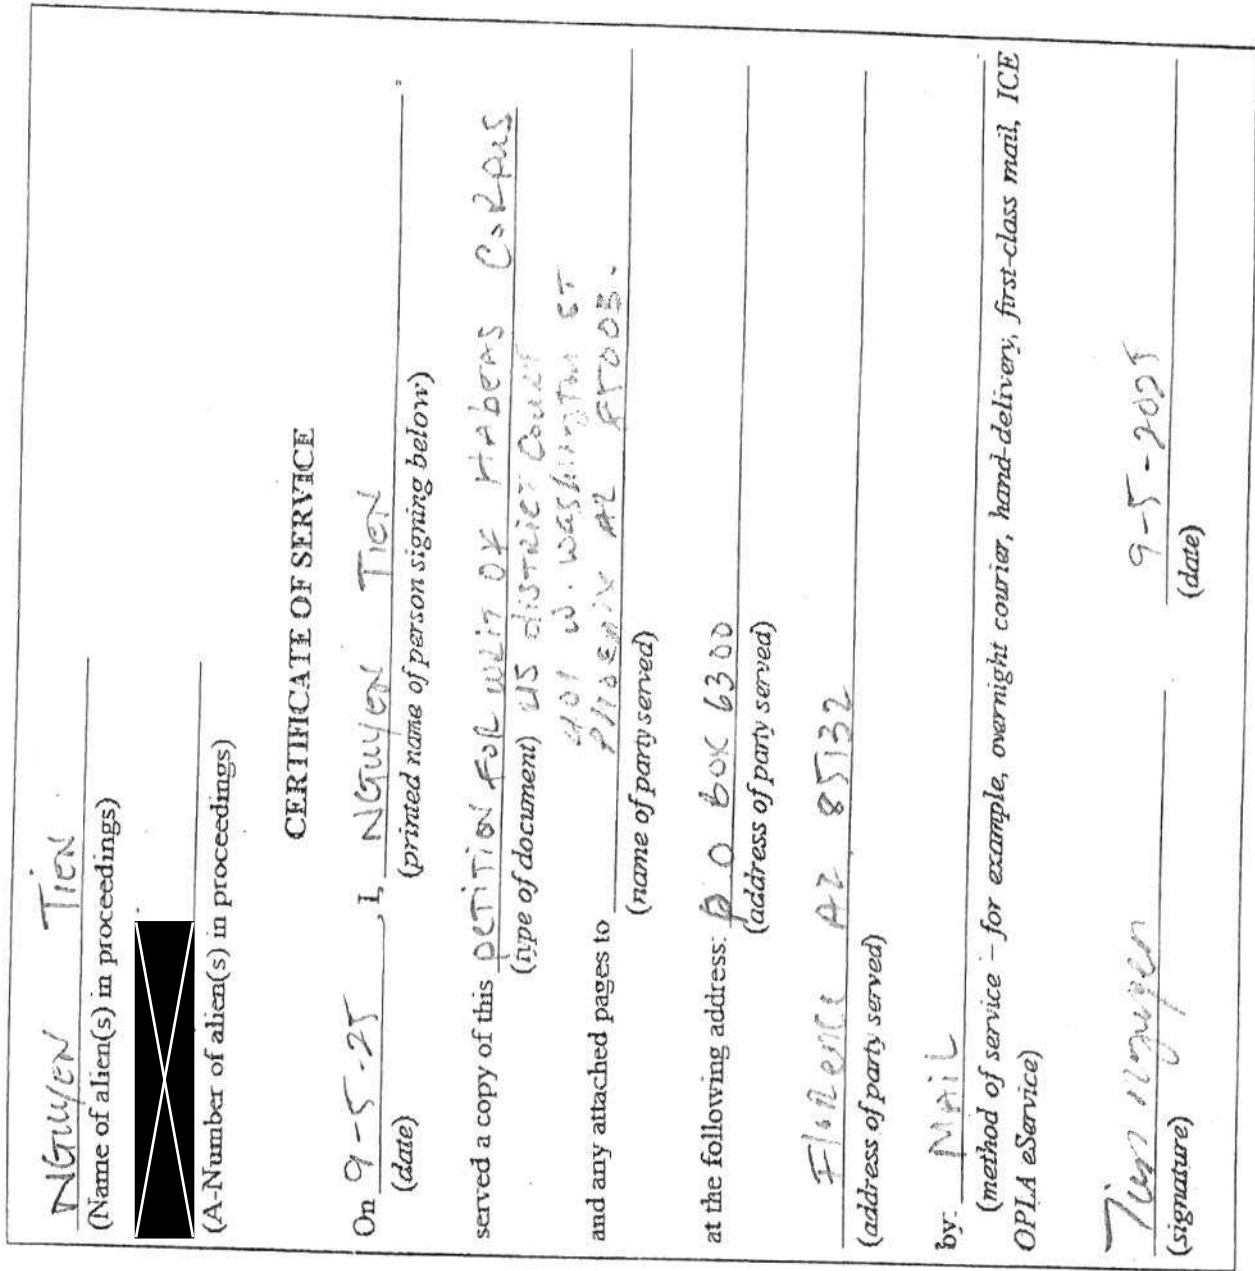 NGUYEN TIEN
(Name of alien(s) in proceedings)
(A-Number of alien(s) in proceedings)
CERTIFICATE OF SERVICE
On 9-5-25, I, NGUYEN TIEN
(date) (printed name of person signing below)
served a copy of this PETITION FOR WRIT OF HABEAS CORPUS
(type of document) US DISTRICT COURT
401 W. WASHINGTON ST
PHOENIX AZ 85003.
and any attached pages to
(name of party served)
at the following address: P O BOX 6300
(address of party served)
FLORENCE AZ 85132
(address of party served)
by: MAIL
(method of service – for example, overnight courier, hand-delivery, first-class mail, ICE
OPLA eService)
Tien Nguyen 9-5-2025
(signature) (date)